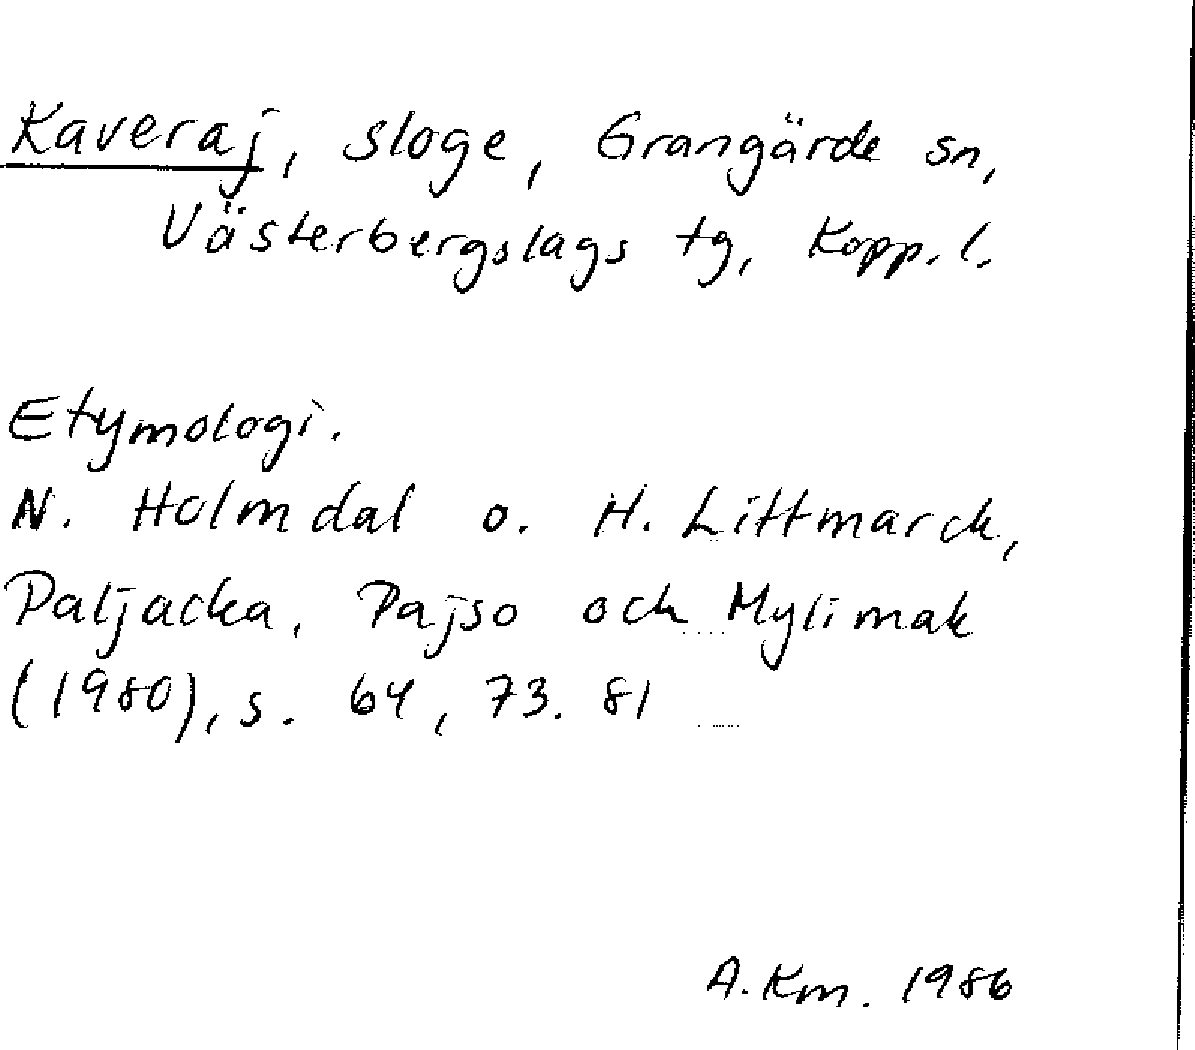 Kaveraj, sloge, Grangärde sn,
Västerbergslags tg, Kopp. l.
Etymologi.
N. Holmdal o. H. Littmarck,
Paljacka, Pajso och Mylimak
(1980), s. 64, 73. 81
A. Km. 1986